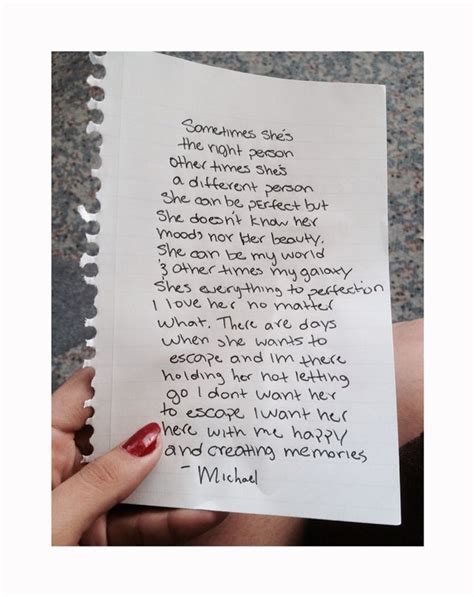 Sometimes she's
the right person
other times she's
a different person
She can be perfect but
She doesn't know her
moods nor her beauty.
She can be my world
& other times my galaxy
Shes everything to perfection
I love her no matter
what. There are days
when she wants to
escape and Im there
holding her not letting
go I dont want her
to escape I want her
here with me happy
and creating memories
- Michael